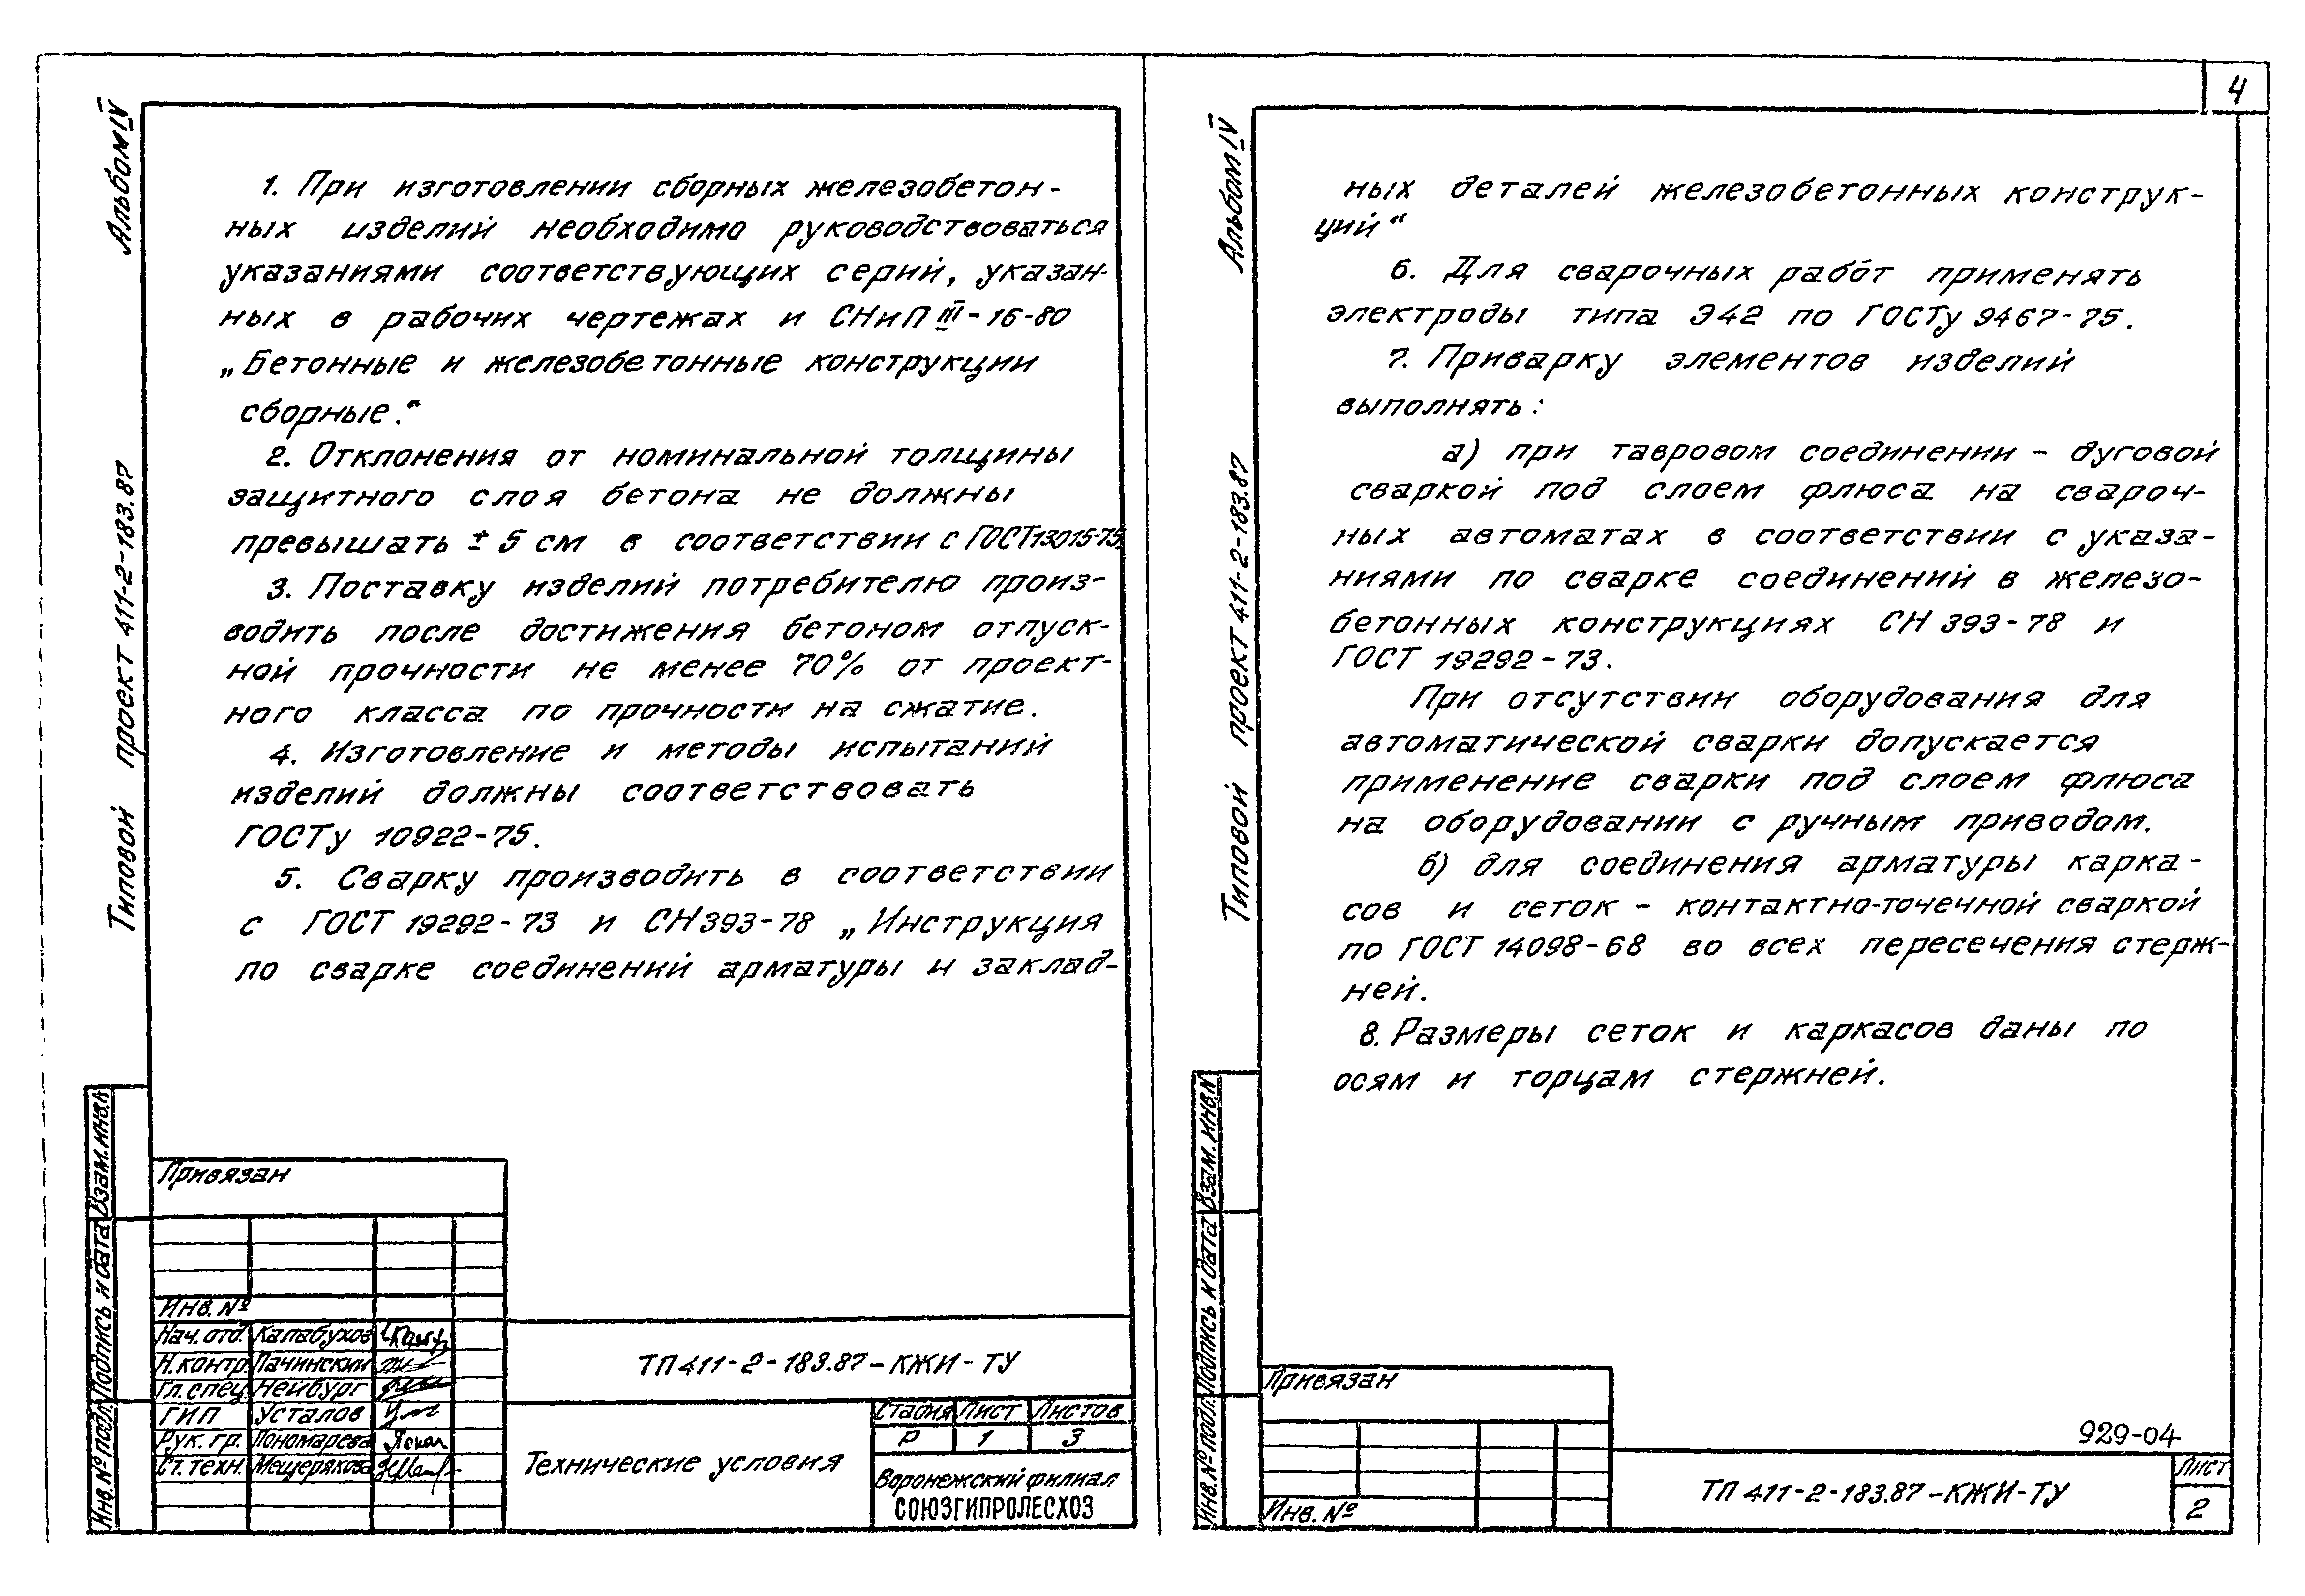 Альбом IV
Типовой проект 411-2-183.87
1. При изготовлении сборных железобетон-
ных изделий необходимо руководствоваться
указаниями соответствующих серий, указан-
ных в рабочих чертежах и СНиП III-16-80
„Бетонные и железобетонные конструкции
сборные.“
2. Отклонения от номинальной толщины
защитного слоя бетона не должны
превышать ± 5 см в соответствии с ГОСТ13015-75
3. Поставку изделий потребителю произ-
водить после достижения бетоном отпуск-
ной прочности не менее 70% от проект-
ного класса по прочности на сжатие.
4. Изготовление и методы испытаний
изделий должны соответствовать
ГОСТу 10922-75.
5. Сварку производить в соответствии
с ГОСТ 19292-73 и СН393-78 „Инструкция
по сварке соединений арматуры и заклад-
Взам. инв.№
Подпись и дата
Инв.№ подл.
Привязан
Инв. №
Нач. отд. Калабухов
Н.контр. Пачинский
Гл.спец. Нейбург
ГИП Усталов
Рук. гр. Пономарева
Ст. техн. Мещерякова
ТП 411-2-183.87-КЖИ-ТУ
Технические условия
Стадия Лист Листов
Р 1 3
Воронежский филиал
СОЮЗГИПРОЛЕСХОЗ
4
Альбом IV
Типовой проект 411-2-183.87
ных деталей железобетонных конструк-
ций“
6. Для сварочных работ применять
электроды типа Э42 по ГОСТу 9467-75.
7. Приварку элементов изделий
выполнять:
а) при тавровом соединении - дуговой
сваркой под слоем флюса на свароч-
ных автоматах в соответствии с указа-
ниями по сварке соединений в железо-
бетонных конструкциях СН 393-78 и
ГОСТ 19292-73.
При отсутствии оборудования для
автоматической сварки допускается
применение сварки под слоем флюса
на оборудовании с ручным приводом.
б) для соединения арматуры карка-
сов и сеток - контактно-точечной сваркой
по ГОСТ 14098-68 во всех пересечения стерж-
ней.
8. Размеры сеток и каркасов даны по
осям и торцам стержней.
Взам. инв.№
Подпись и дата
Инв.№ подл.
Привязан
Инв. №
929-04
ТП 411-2-183.87-КЖИ-ТУ
Лист
2